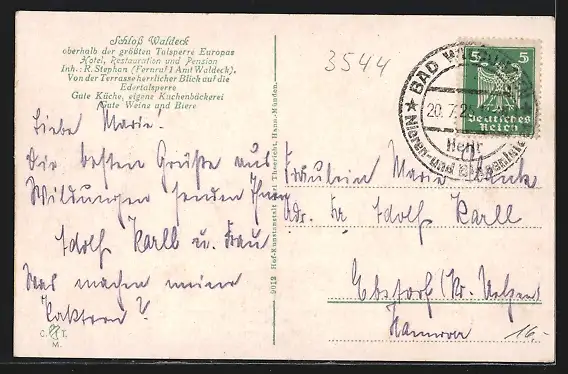 Schloß Waldeck
oberhalb der größten Talsperre Europas
Hotel, Restauration und Pension
Inh.: R. Stephan (Fernruf 1 Amt Waldeck).
Von der Terrasse herrlicher Blick auf die
Edertalsperre
Gute Küche, eigene Kuchenbäckerei
Gute Weine und Biere
3544
BAD
20.7.2
5 5
Deutsches
Reich
Liebe Marie!
Die besten Grüße aus
Wildungen senden Ihnen
Adolf Karll u. Frau
Was machen meine
Kakteen?
C. T.
M.
9012 Hof-Kunstanstalt Carl Thoericht, Hann.-Münden.
Fräulein Maria
Adr. Fr Adolf Karll
Ebstorf (Kr. Uelzen
Hannover
16.-